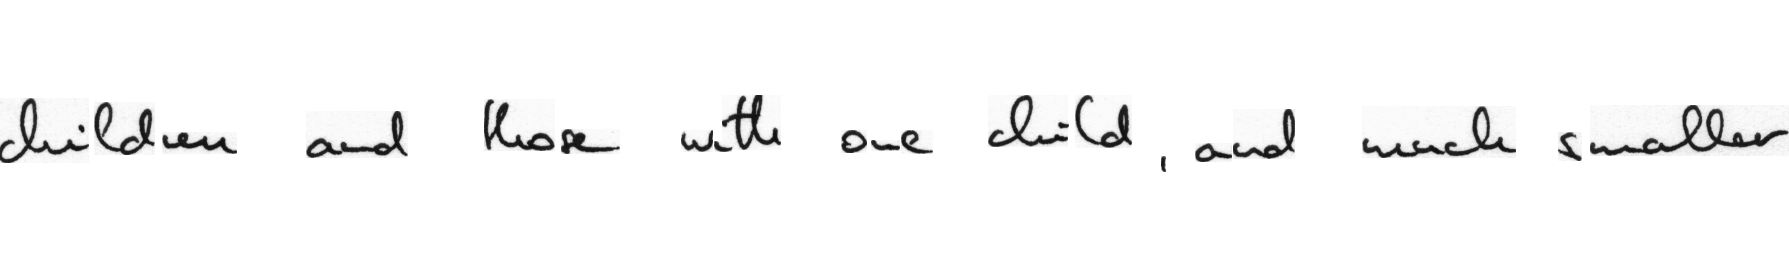 children and those with one child, and much smaller